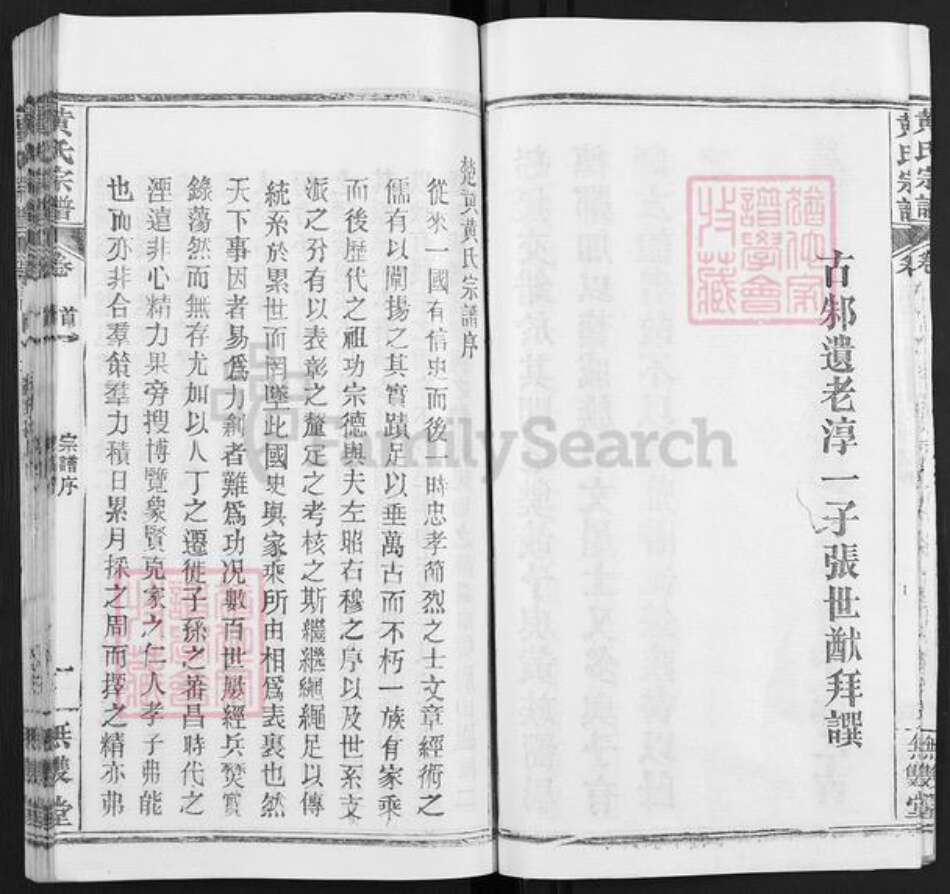 黃氏宗譜
卷
無雙堂
古邾遺老淳一子張世猷拜譔
猶他家譜學會收藏
楚黃黃氏宗譜序
從來一國有信史而後一時忠孝節烈之士文章經術之
儒有以闡揚之其實蹟足以垂萬古而不朽一族有家乘
而後歷代之祖功宗德與夫左昭右穆之序以及世系支
派之分有以表彰之釐定之考核之斯繼繼繩繩足以傳
統系於累世而罔墜此國史與家乘所由相為表裏也然
天下事因者易為力創者難為功況數百世歷經兵燹實
錄蕩然而無存尤加以人丁之遷徙子孫之蕃昌時代之
湮遠非心精力果旁搜博覽象賢克家之仁人孝子弗能
也而亦非合羣策羣力積日累月採之周而擇之精亦弗
黃氏宗譜
卷首
宗譜序
一
無雙堂
猶他家譜學會收藏
FamilySearch